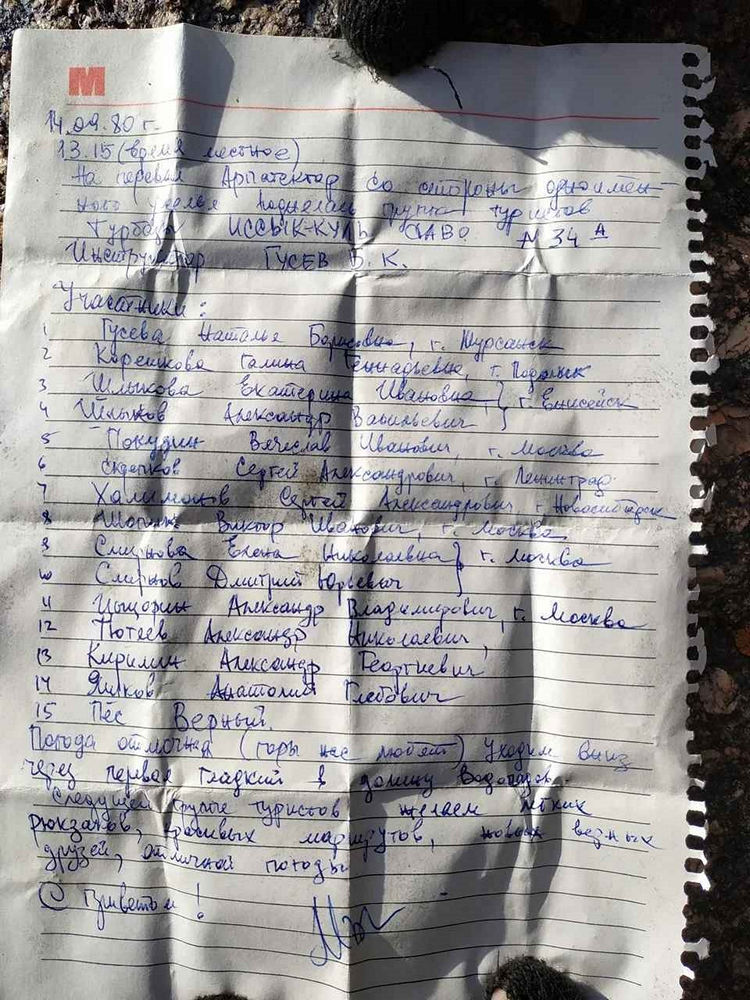 М
14.09.80 г.
13.15 (время местное)
На перевал Арпатектор со стороны одноимен-
ного ущелья поднялась группа туристов
Турбазы ИССЫК-КУЛЬ САВО N 34 А
Инструктор ГУСЕВ В. К.
Участники:
1 Гусева Наталья Борисовна, г.
2 Корешкова Галина Геннадьевна, г. Подольск
3 Шлыкова Екатерина Ивановна } г. Енисейск
4 Шлыков Александр Васильевич }
5 Покудин Вячеслав Иванович, г. Москва
6 Сергей Александрович, г. Ленинград
7 Халимонов Сергей Александрович, г. Новосибирск
8 Виктор Иванович, г. Москва
9 Смирнова Елена Николаевна } г. Москва
10 Смирнов Дмитрий Юрьевич }
11 Александр Владимирович, г. Москва
12 Александр Николаевич,
13 Кирилин Александр Георгиевич
14 Анатолий Глебович
15 Пёс Верный.
Погода отличная (горы нас любят) Уходим вниз
через перевал Гладкий в долину Водопадов.
Следующей группе туристов желаем лёгких
рюкзаков, красивых маршрутов, новых верных
друзей, отличной погоды
С приветом!